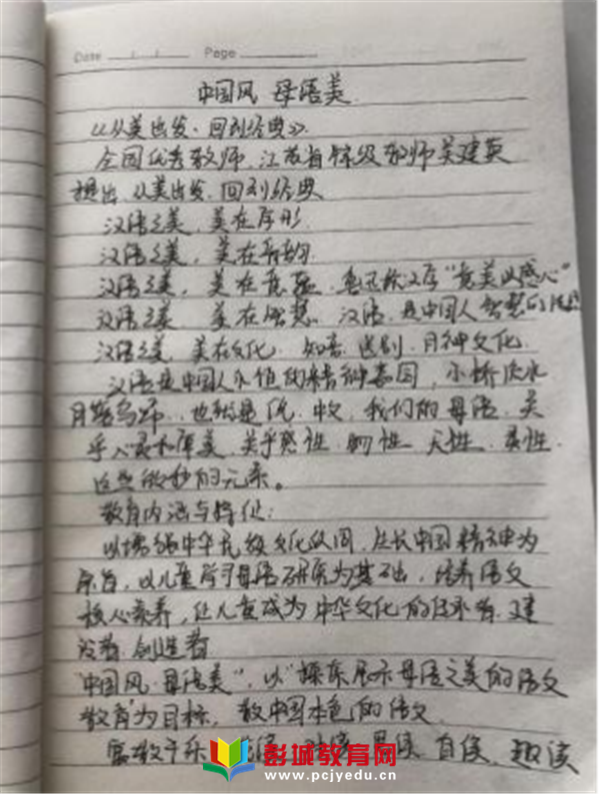 Date / / Page
中国风 母语美
《从美出发·回到经典》
全国优秀教师、江苏省特级教师吴建英
提出 从美出发、回到经典
汉语之美，美在字形
汉语之美，美在音韵
汉语之美，美在意蕴，鲁迅称汉字“意美以感心”
汉语之美 美在智慧、汉语，是中国人智慧的
汉语之美 美在文化、知音、送别、月神文化
汉语是中国人永恒的精神家园，小桥流水
月落乌啼，也就是说，中文，我们的母语，关
乎人 美，关乎 性、物性、天性、柔性
这些微妙的元素。
教育内涵与特征：
以增强中华民族文化认同，生长中国精神为
宗旨，以儿童学习母语研究为基础，培养语文
核心素养，让儿童成为中华文化的传承者、建
设者、创造者
“中国风·母语美”，以“探索展示母语之美的语文
教育”为目标，教中国本色的语文
寓教于乐 自读、趣读
彭城教育网
www.pcjyedu.cn